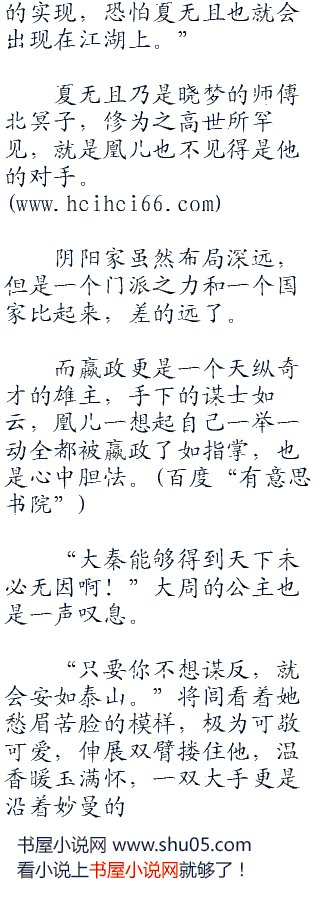 的实现，恐怕夏无且也就会
出现在江湖上。”
夏无且乃是晓梦的师傅
北冥子，修为之高世所罕
见，就是凰儿也不见得是他
的对手。
(www.hcihci66.com)
阴阳家虽然布局深远，
但是一个门派之力和一个国
家比起来，差的远了。
而嬴政更是一个天纵奇
才的雄主，手下的谋士如
云，凰儿一想起自己一举一
动全都被嬴政了如指掌，也
是心中胆怯。(百度“有意思
书院”)
“大秦能够得到天下未
必无因啊！”大周的公主也
是一声叹息。
“只要你不想谋反，就
会安如泰山。”将闾看着她
愁眉苦脸的模样，极为可敬
可爱，伸展双臂搂住他，温
香暖玉满怀，一双大手更是
沿着妙曼的
书屋小说网 www.shu05.com
看小说上书屋小说网就够了！